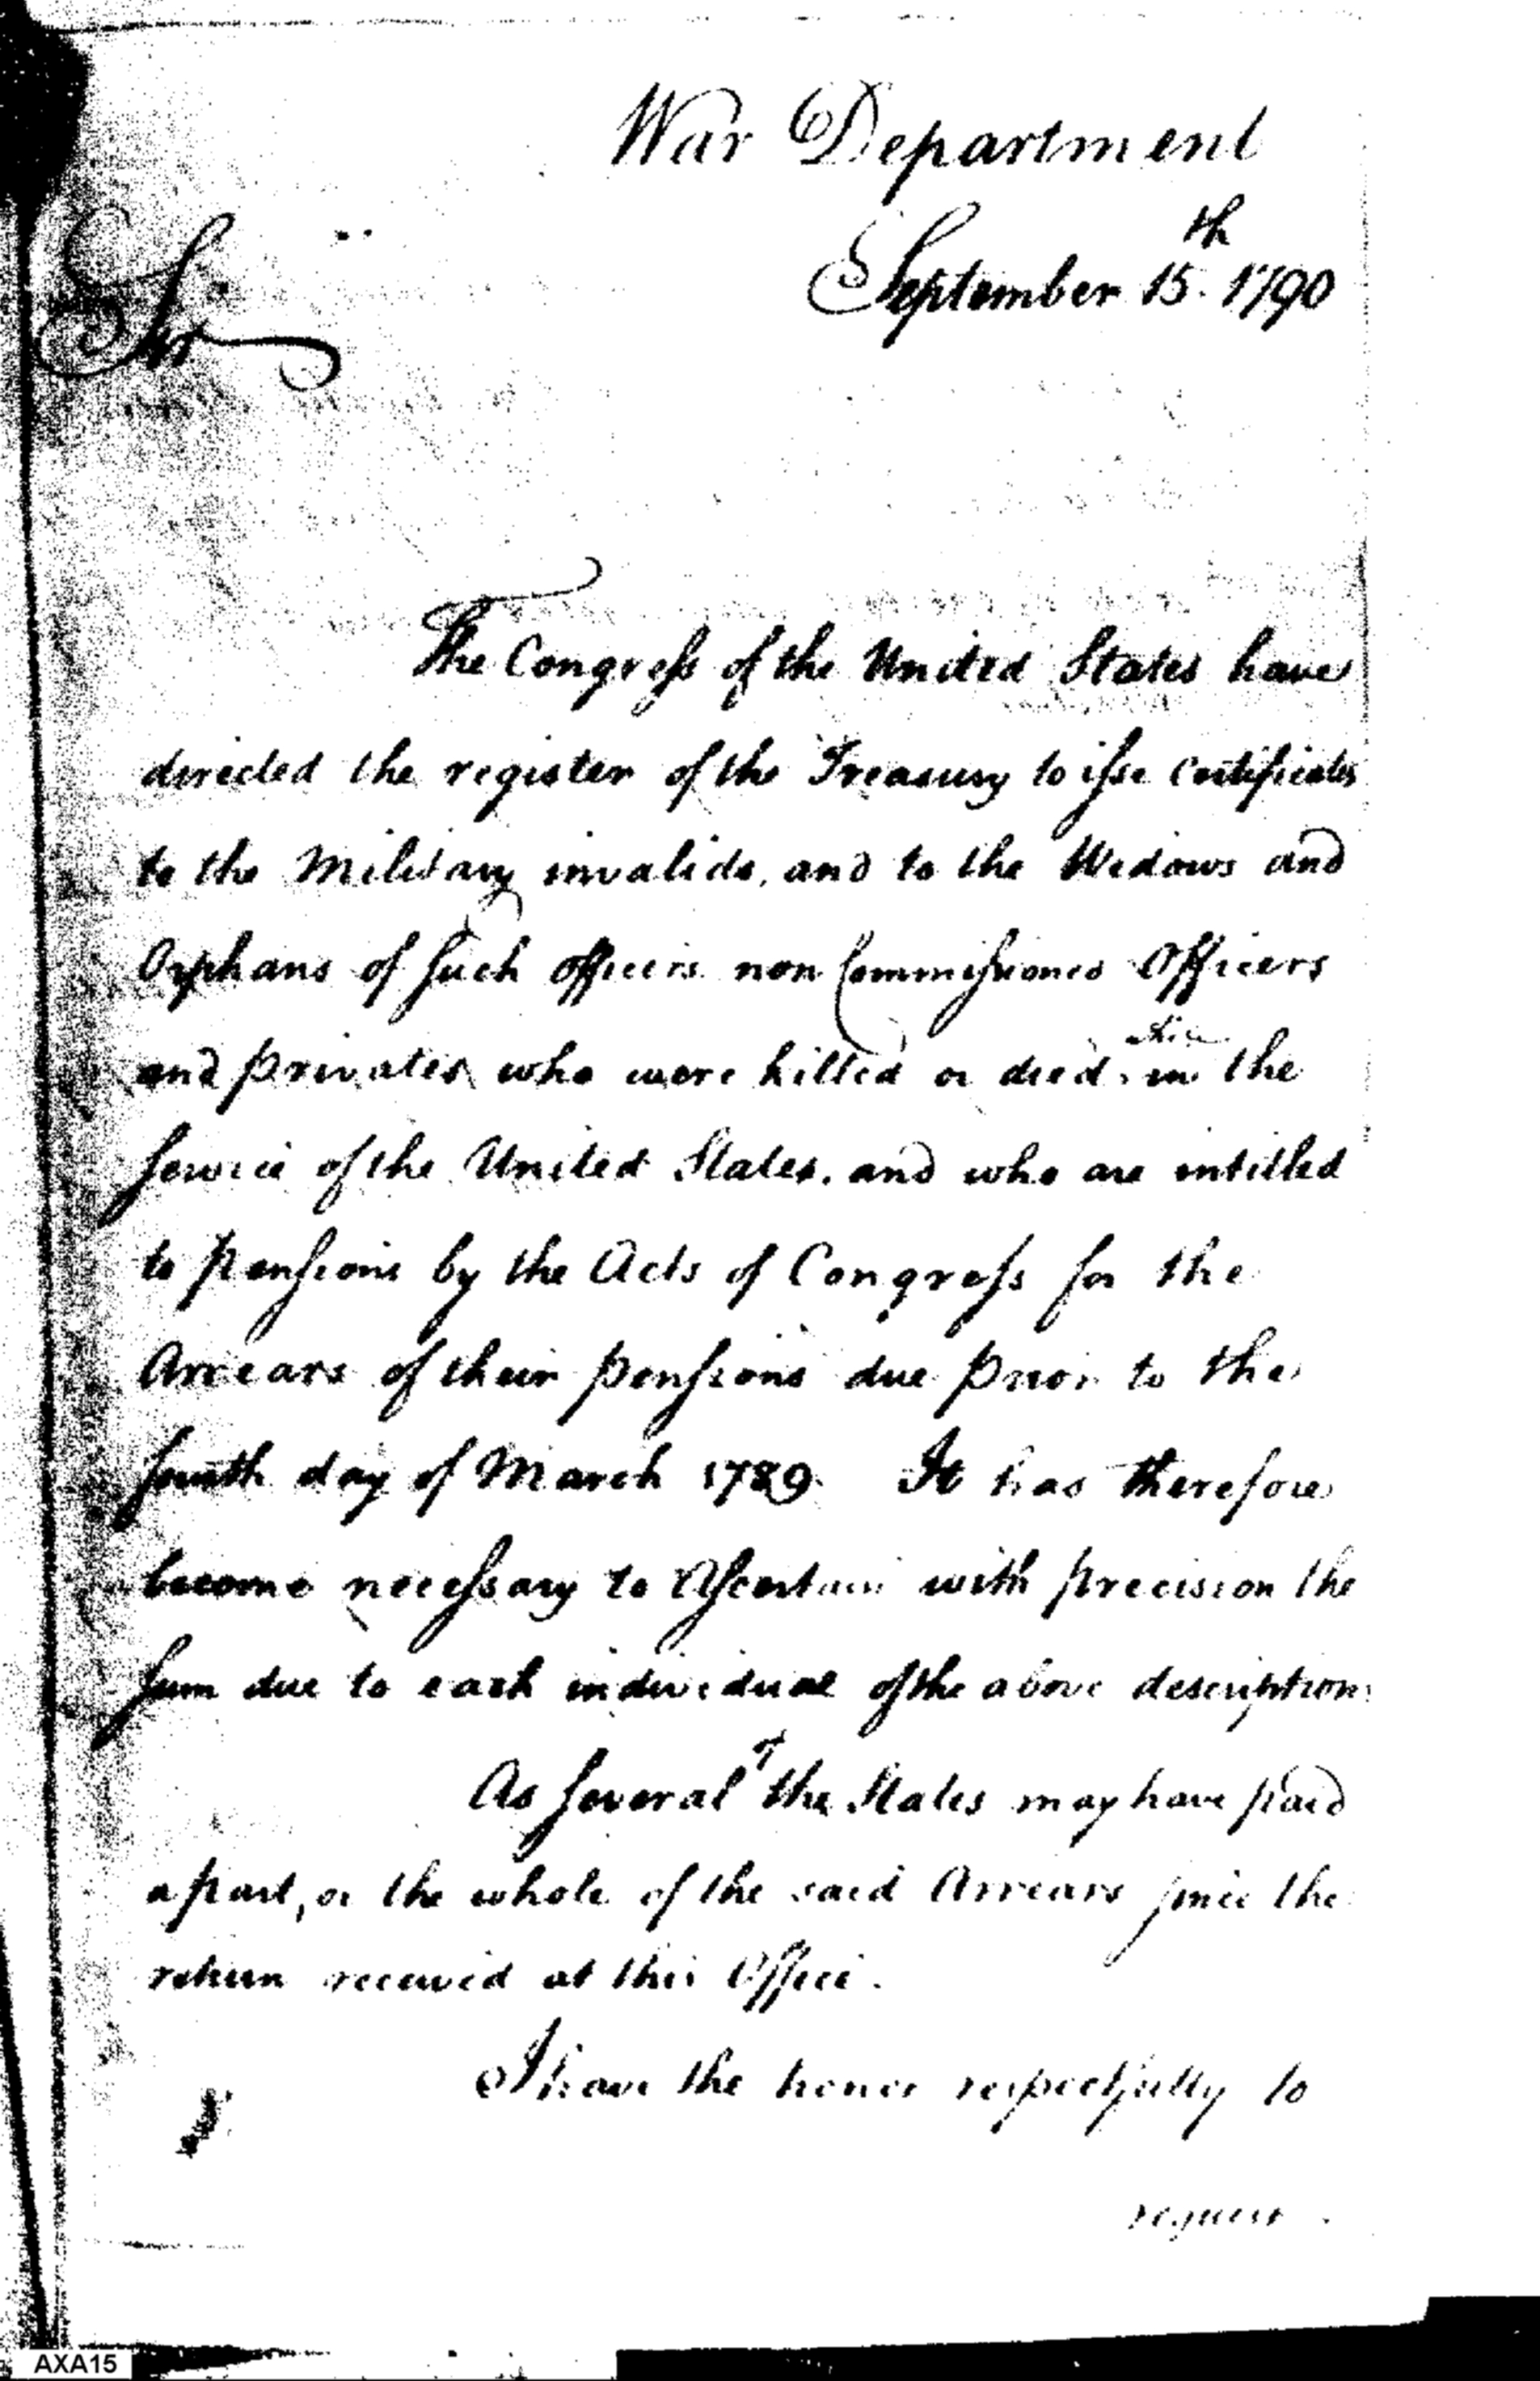 War Department
September 15th 1790
Sir
The Congress of the United States have
directed the register of the Treasury to isse Certificates
to the Military invalids, and to the Widows and
Orphans of such officers non Commissioned Officers
and privates who were killed or died in the
service of the United States. and who are intitled
to pensions by the Acts of Congress for the
Arrears of their pensions due prior to the
fourth day of March 1789. It has therefore
become necessary to Ascertain with precision the
sum due to each individual of the above description
As several of the States may have paid
a part, or the whole of the said Arrears since the
return received at this Office.
I have the honor respectfully to
request
AXA15